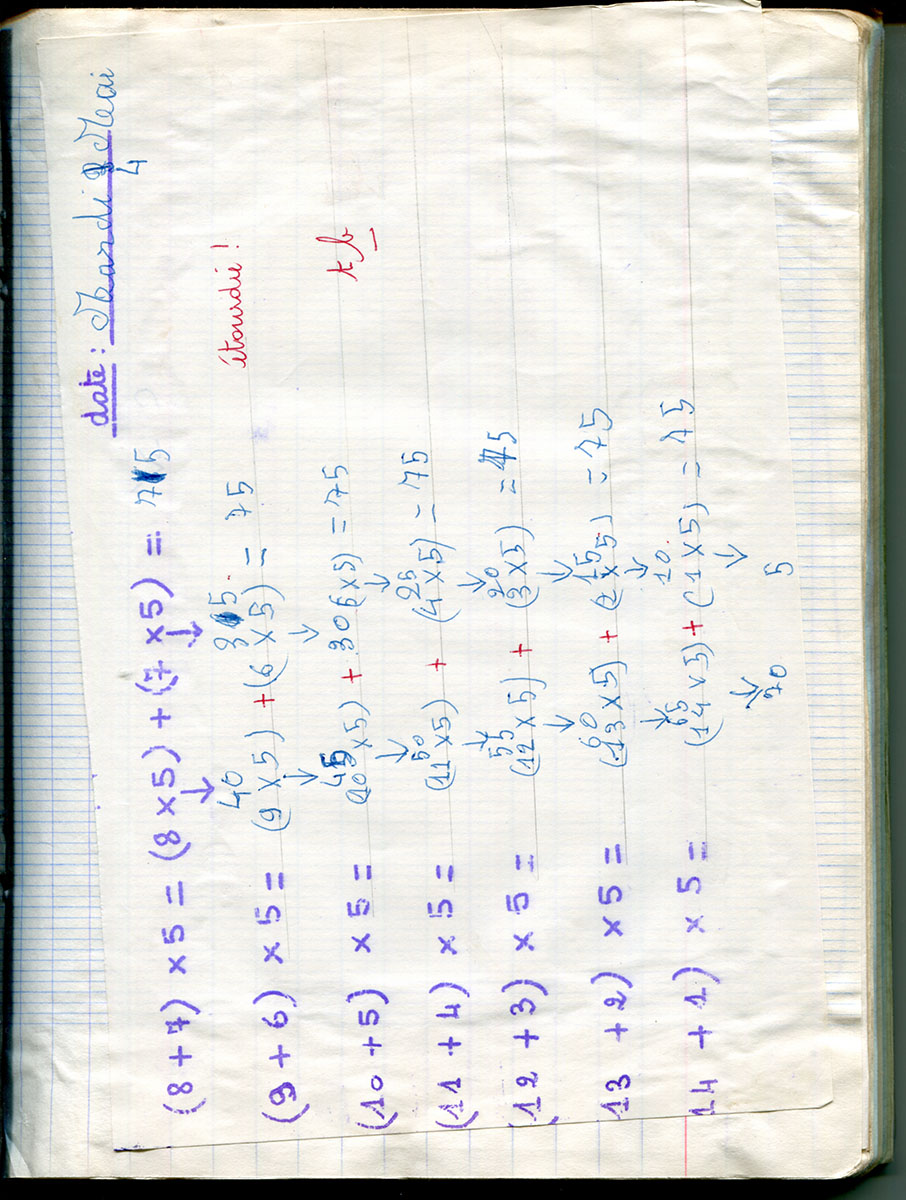 date : Mardi 4 Mai
(8 + 7) × 5 = (8 × 5) + (7 × 5) = 75
↓ ↓
40 35
étourdie !
(9 + 6) × 5 = (9 × 5) + (6 × 5) = 75
↓ ↓
45 30
t b
(10 + 5) × 5 = (10 × 5) + (5 × 5) = 75
↓ ↓
50 25
(11 + 4) × 5 = (11 × 5) + (4 × 5) = 75
↓ ↓
55 20
(12 + 3) × 5 = (12 × 5) + (3 × 5) = 75
↓ ↓
60 15
13 + 2) × 5 = (13 × 5) + (2 × 5) = 75
↓ ↓
65 10
14 + 1) × 5 = (14 × 5) + (1 × 5) = 75
↓ ↓
70 5